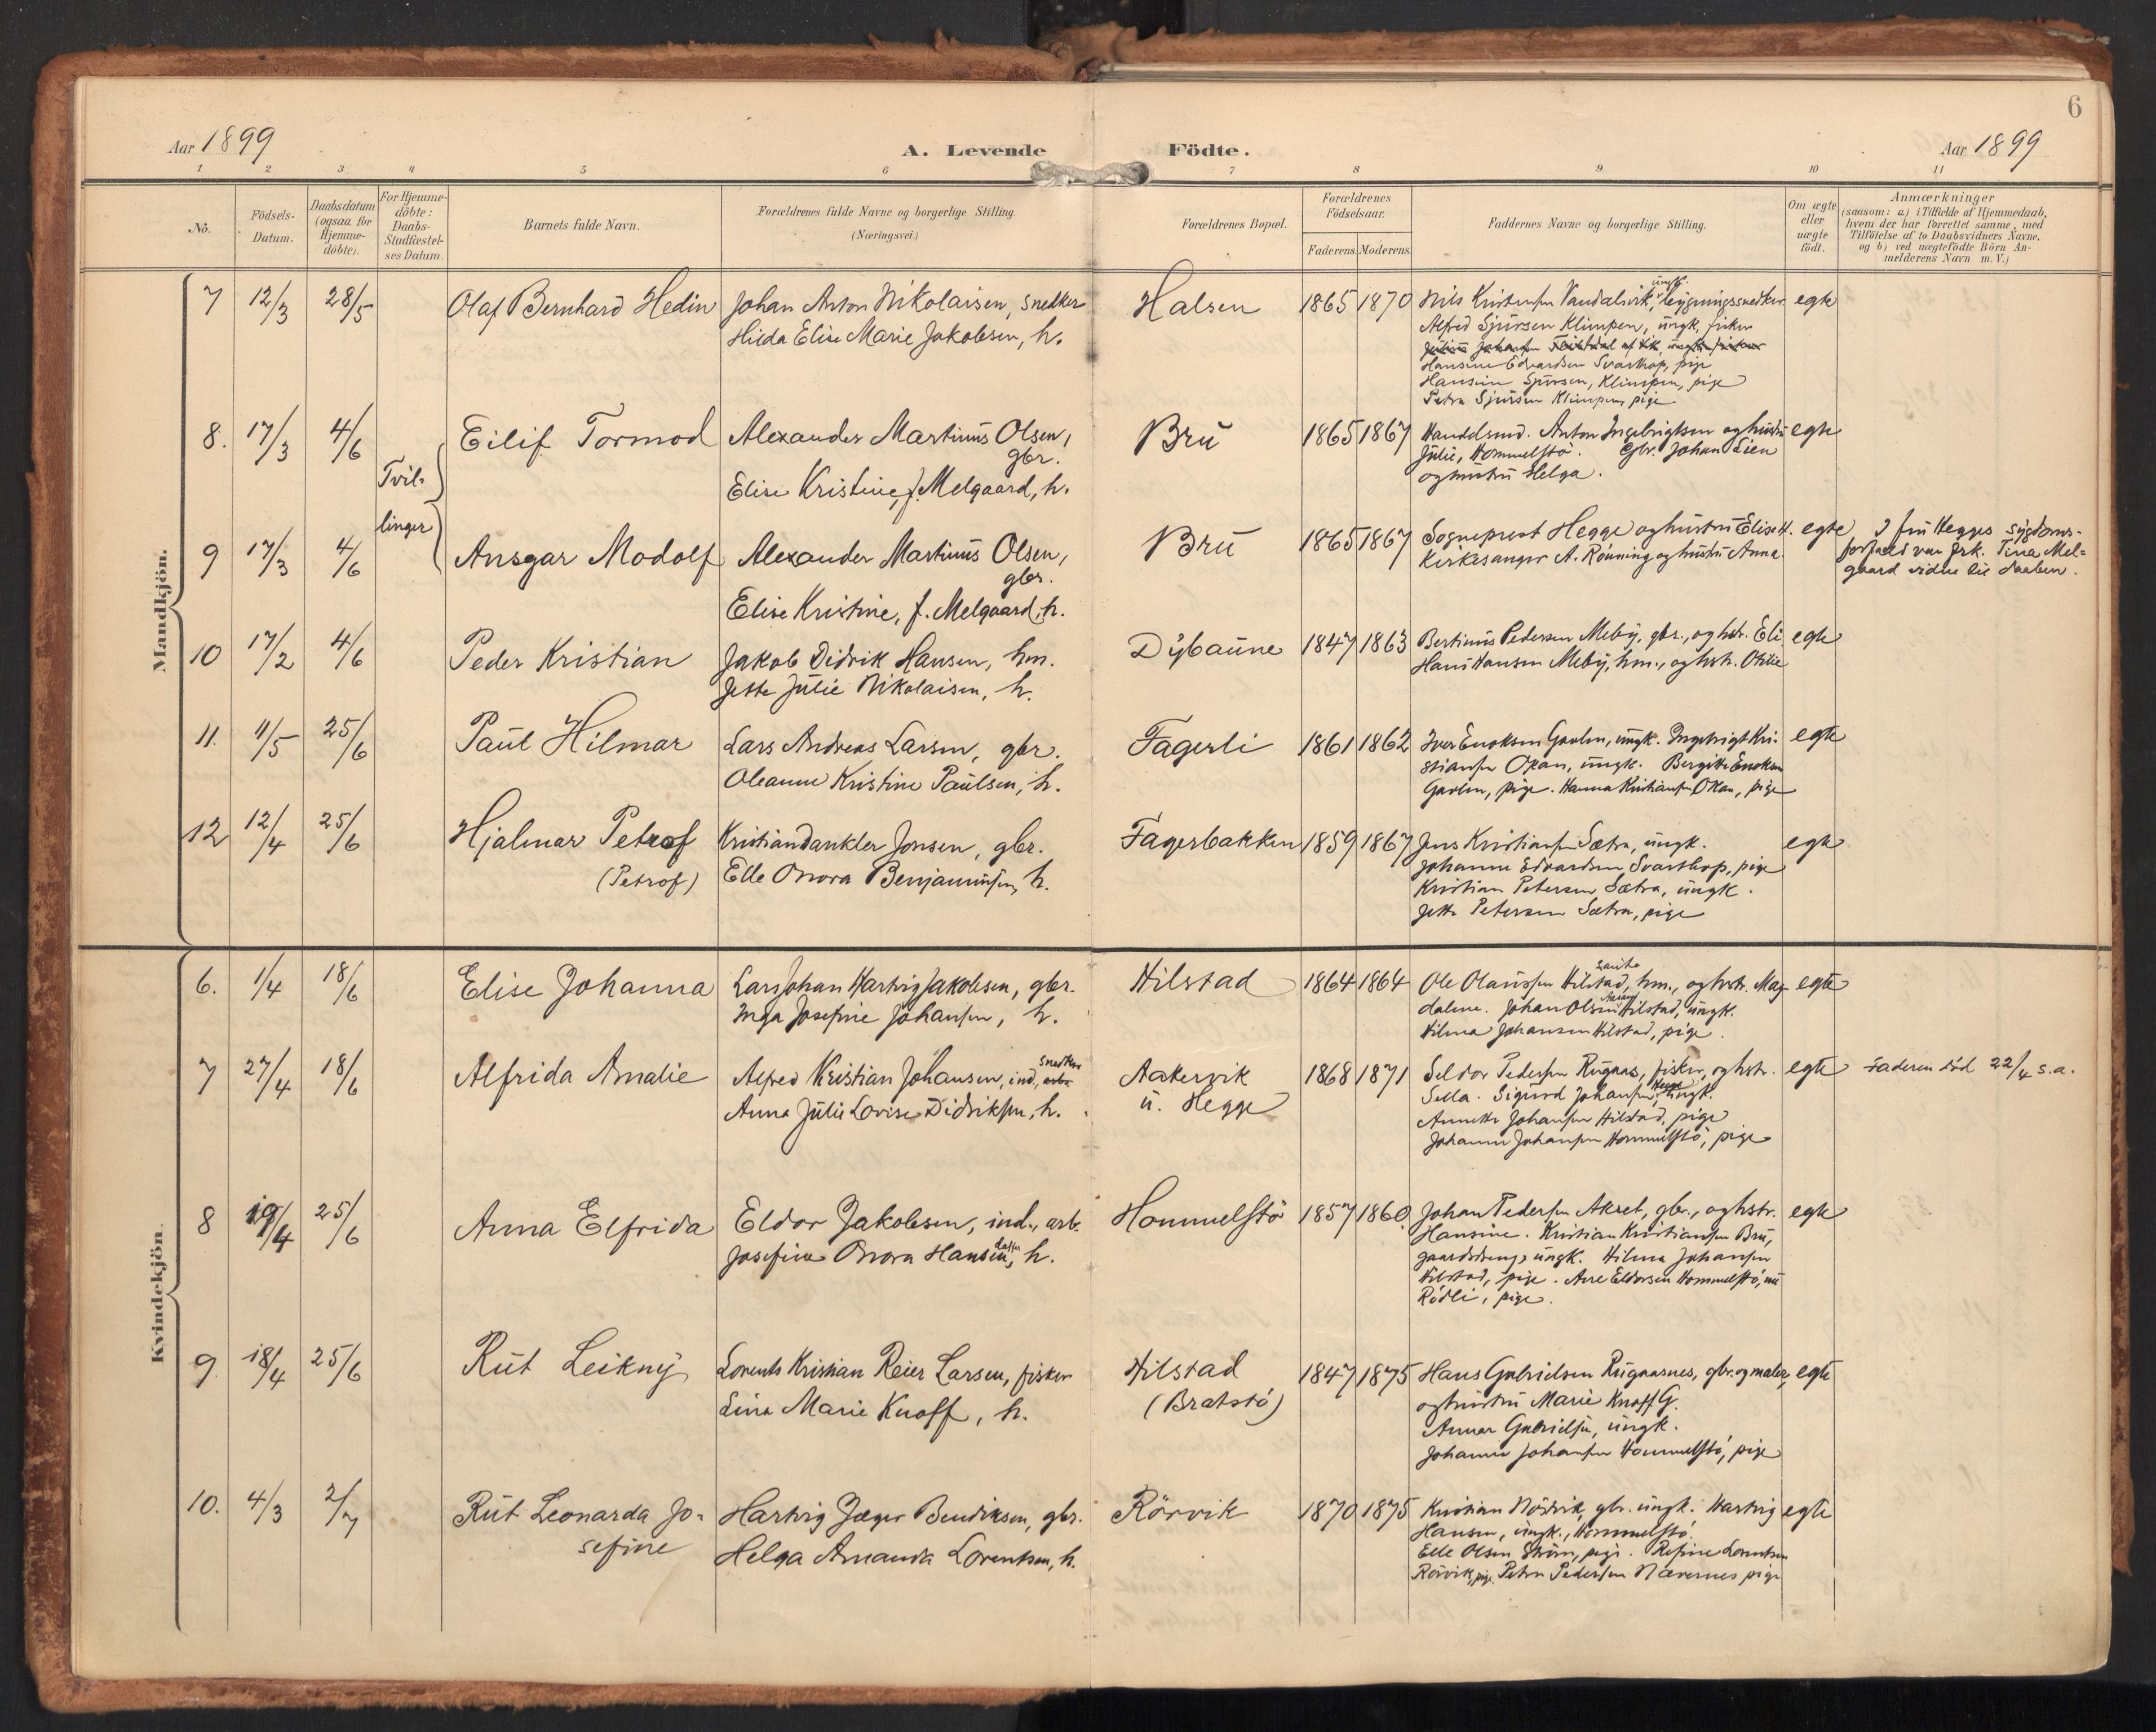 6
Aar 1899
A. Levende Födte.
Aar 1899
1 2 3 4 5 6 7 8 9 10 11
No.
Födsels-
Datum.
Daabsdatum
(ogsaa for
Hjemme-
döbte).
For Hjemme-
döbte:
Daabs-
Stadfæstel-
ses Datum.
Barnets fulde Navn.
Forældrenes fulde Navne og borgerlige Stilling.
(Næringsvei.)
Forældrenes Bopæl.
Forældrenes
Födselsaar.
Faderens. Moderens.
Faddernes Navne og borgerlige Stilling.
Om ægte
eller
uægte
födt.
Anmærkninger
(saasom: a) i Tilfælde af Hjemmedaab,
hvem der har forrettet samme, med
Tilföielse af to Daabsvidners Navne,
og b) ved uægtefödte Börn An-
melderens Navn m. V.)
Mandkjön.
7 12/3 28/5 Olaf Bernhard Hedin
Johan Anton Nikolaisen, snedker
Hilda Elise Marie Jakobsen, h.
Halsen 1865 1870
ungk.
Nils Kristensen Vandalsvik, bygningssnedker
Alfred Sjursen Klimpen, ungk, fisker
Hansine Edvardsen Svarthop, pige
Hansine Sjursen, Klimpen, pige
Petra Sjursen Klimpen, pige
egte
8. 17/3 4/6 Tvil- Eilif Tormod
Alexander Martinus Olsen,
gbr.
Elise Kristine, f. Melgaard, h.
Bru 1865 1867
Handelsmd. Anton Ingebrigtsen og hustru
Julie, Hommelstø. Gbr. Johan Lien
og hustru Helga.
egte
9 17/3 4/6 linger Ansgar Modolf
Alexander Martinus Olsen,
gbr.
Elise Kristine, f. Melgaard, h.
Bru 1865 1867
Sogneprest Hegge og hustru Elise H.
Kirkesanger A. Rönning og hustru Anna
egte
I fru Hegges sygdoms-
forfald var frk. Tina Mel-
gaard vidne til daaben.
10 17/2 4/6 Peder Kristian
Jakob Didrik Hansen, hm.
Jette Julie Nikolaisen, h.
Dybaune 1847 1863
Bertinus Pedersen Meby, gbr., og hstr. Eli
Hans Hansen Meby, hm., og hstr. Otilie
egte
11. 11/5 25/6 Paul Hilmar
Lars Andreas Larsen, gbr.
Oleanne Kristine Paulsen, h.
Fagerli 1861 1862
Iver Enoksen Gaolen, ungk. Ingebrigt Kri-
stiansen Okan, ungk. Bergitte Enoksen
Gaolen, pige. Hanna Kristiansen Okan, pige
egte
12 12/4 25/6 Hjalmar Petrof
(Petrof)
Kristian Dankler Jonsen, gbr.
Elle Onora Benjaminsen, h.
Fagerbakken 1859 1867
Jens Kristiansen Sætra, ungk.
Johanne Edvardsen Svarthop, pige
Kristian Petersen Sætra, ungk.
Jette Petersen Sætra, pige
egte
Kvindekjön
6. 1/4 18/6 Elise Johanna
Lars Johan Hartvig Jakobsen, gbr.
Inga Josefine Johansen, h.
Hilstad 1864 1864
Ole Olaussen Hilstad, hm., og hstr. Mag-
dalene. Johan Olsen Hilstad, ungk.
Hilma Johansen Hilstad, pige.
egte
7 27/4 18/6 Alfrida Amalie
snedker
Alfred Kristian Johansen, ind. arb.
Anna Julie Lovise Didriksen, h.
Aakervik
u. Hegge
1868 1871
Seldor Pedersen Rugaas, fisker, og hstr.
Sella. Sigurd Johansen Hegge, ungk.
Annette Johansen Hilstad, pige
Johanne Johansen Hommelstø, pige
egte
Faderen död 22/4 s.a.
8 19/4 25/6 Anna Elfrida
Eldor Jakobsen, ind., arb.
datter
Josefine Onora Hansen, h.
Hommelstö 1857 1860.
Johan Pedersen Akset, gbr., og hstr.
Hansine. Kristian Kristiansen Bru,
gaardsdreng, ungk. Hilma Johansen
Hilstad, pige. Anne Eldorsen Hommelstö, nu
Rödli, pige.
egte
9. 18/4 25/6 Rut Leikny
Lorents Kristian Reier Larsen, fisker
Lina Marie Knoff, h.
Hilstad
(Bratstö)
1847 1875
Hans Gabrielsen Rugaasnes, gbr. og maler,
og hustru Marie Knoff G.
Annar Gabrielsen, ungk.
Johanne Johansen Hommelstö, pige
egte
10. 4/3 2/7 Rut Leonarda Jo-
sefine
Hartvig Jæger Bendiksen, gbr.
Helga Amanda Lorentsen, h.
Rörvik 1870 1875
Kristian Nördvik, gbr. ungk. Hartvig
Hansen, ungk., Hommelstö.
Elle Olsen Ström, pige. Refine Lorentsen
Rörvik, pige. Petra Pedersen Nærenes pige
egte